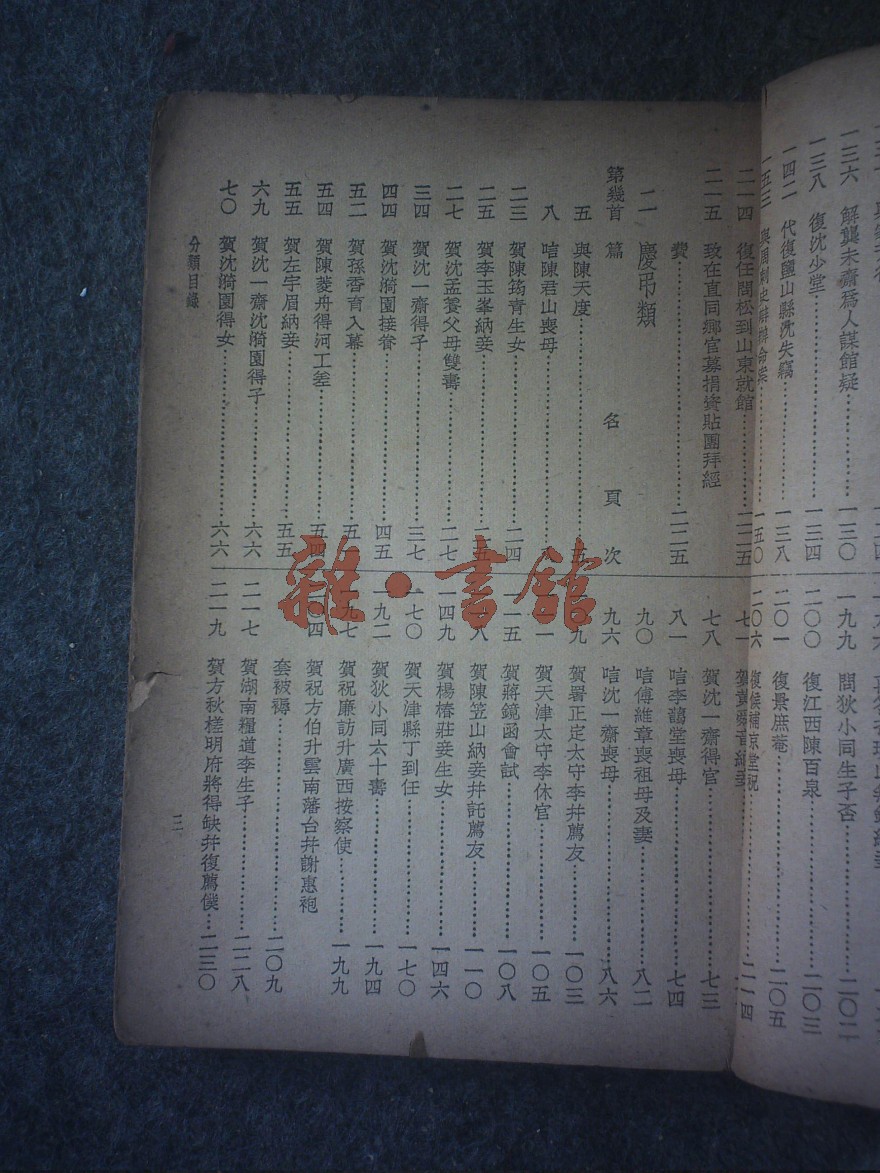 一三六 解龔未齋爲人謀館疑……一三〇
一三八 復沈少堂……一三四
一四二 代復鹽山縣沈失竊……一三八
一五三 與周刺史辯辦命案……一五〇
二一四 復任問松到山東就館……二二五
二一五 致在直同鄉官募捐資貼團拜經
費……二二五
二 慶弔類
第幾首 篇 名 頁 次
五 與陳天度……五
八 唁陳君山喪母
二三 賀陳筠青生女……二四
二五 賀李玉峯納妾
二七 賀沈孟養父母雙壽……二七
三四 賀沈一齋得子……三七
四四 賀沈漪園接眷……四五
五二 賀孫香育入幕
五四 賀陳菱舟得河工差……五四
五五 賀左宇眉納妾……五五
六九 賀沈一齋沈漪園得子……六六
七〇 賀沈漪園得女……六六
一九九 問狄小同生子否……二〇二
二〇〇 復江西陳百泉……二〇三
二〇一 復景庶菴……二〇五
二〇六 復候補京堂祝……二一四
七八 賀沈一齋得官……七三
八一 唁李藹堂喪母……七四
九〇 唁傅維章喪祖母及妻……八二
九六 唁沈一齋喪母……八六
賀署正定太守李并薦友……一〇三
賀天津太守李休官……一〇五
賀蔣鏡函會試……一〇八
賀陳笠山納妾并託薦友……一一〇
一四九 賀楊椿莊妾生女……一四六
一七〇 賀天津縣丁到任……一七〇
一九二 賀狄小同六十壽……一九四
賀祝廉訪升廣西按察使……一九九
賀祝方伯升雲南藩台并謝惠袍
套被褥……二〇九
二一七 賀湖南糧道李生子……二二八
二一九 賀方秋槎明府將得缺并復薦僕……二三〇
分類目錄
三
雜·書館